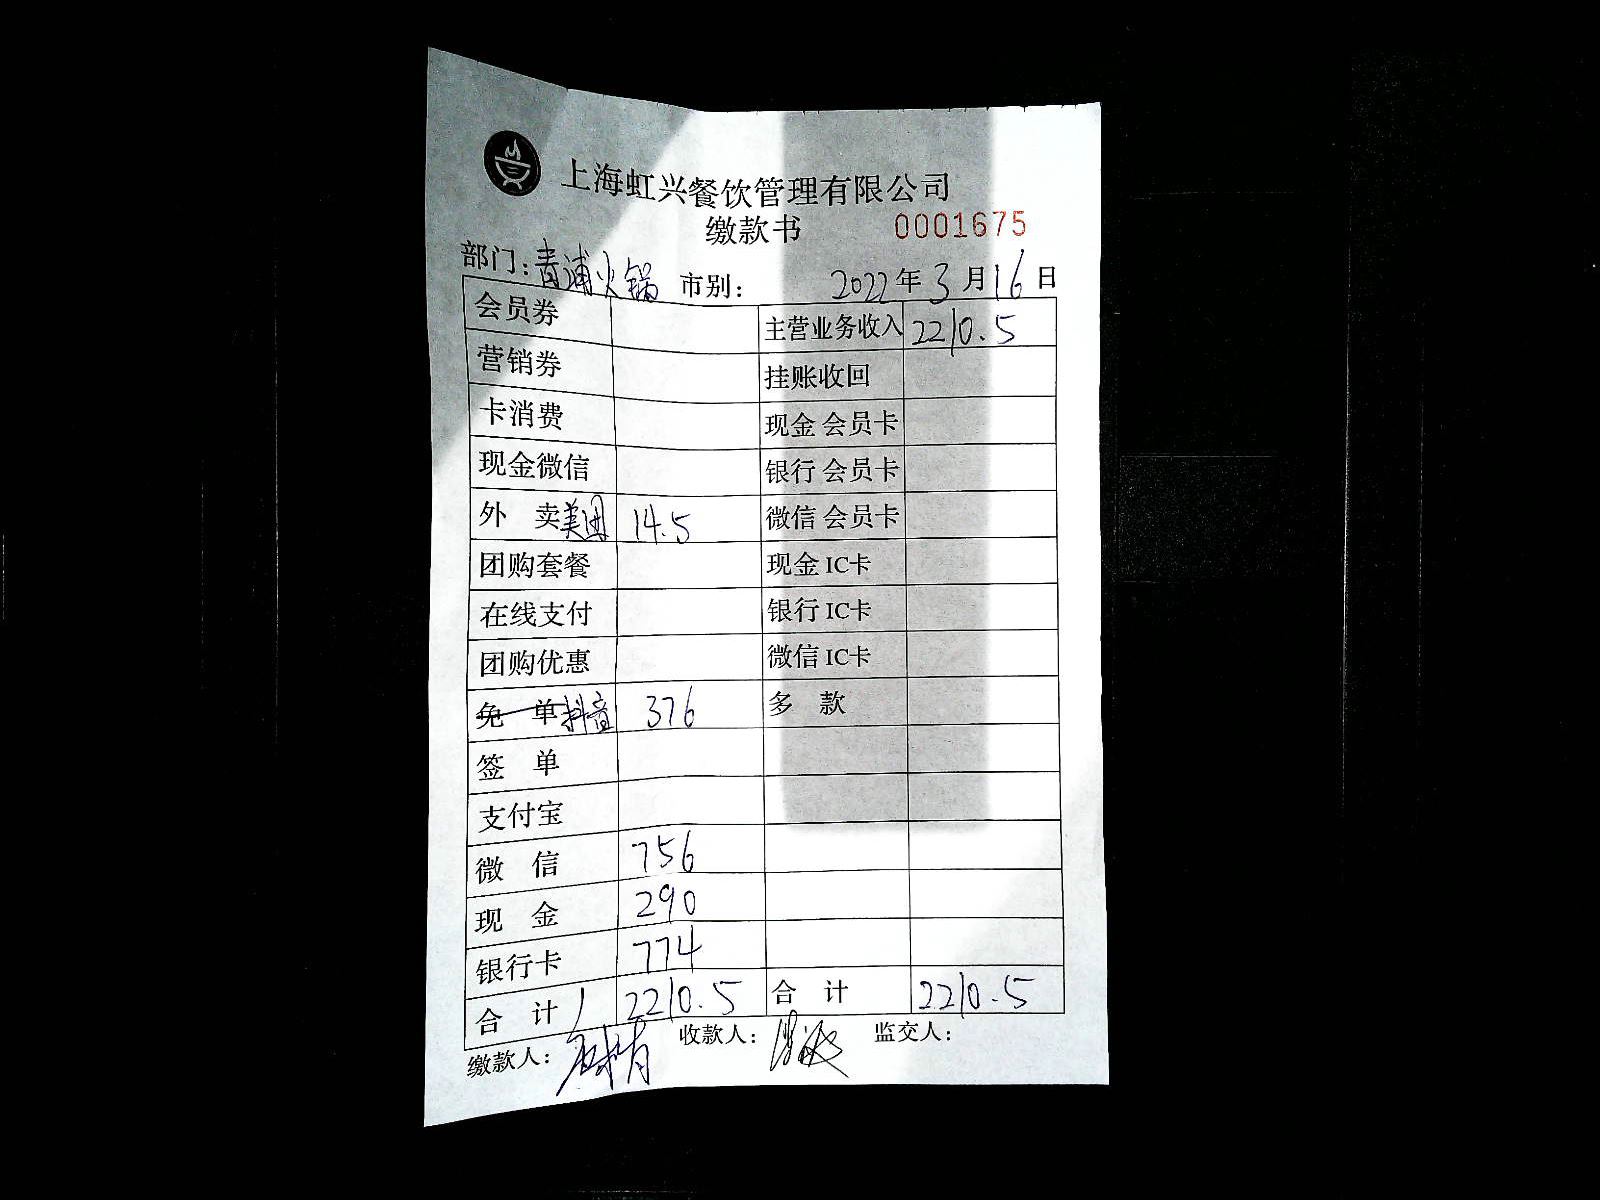 上海虹兴餐饮管理有限公司
缴款书 0001675
部门：青浦火锅 市别： 2022年3月16日
会员券 主营业务收入 2210.5
营销券 挂账收回
卡消费 现金 会员卡
现金微信 银行 会员卡
外 卖美团 14.5 微信 会员卡
团购套餐 现金 IC卡
在线支付 银行 IC卡
团购优惠 微信 IC卡
免 单抖音 376 多 款
签 单
支付宝
微 信 756
现 金 290
银行卡 774
合 计 2210.5 合 计 2210.5
缴款人： 收款人： 监交人：